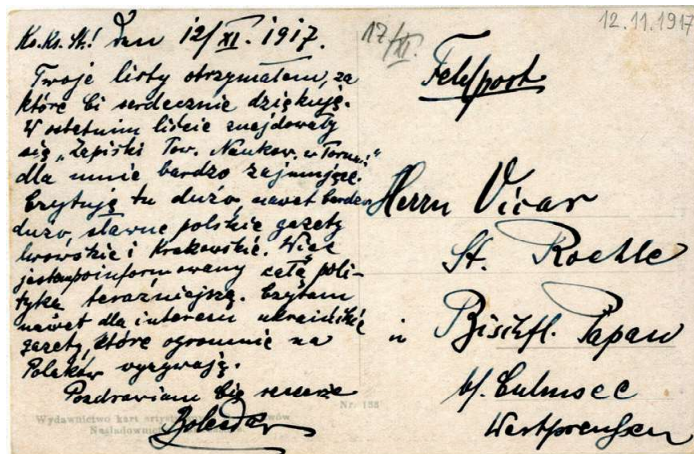 12.11.1917
17/XI.
Ks. Ks. St.! Den 12/XI. 1917.
Twoje listy otrzymałem, za
które Ci serdecznie dziękuję.
W ostatnim liście znajdowały
się „Zapiski Tow. Naukow. w Toruniu"
dla mnie bardzo zajmujące.
Czytuję tu dużo, nawet bardzo
dużo, sławne polskie gazety
lwowskie i Krakowskie. Więc
jestem poinformowany całą poli-
tyką teraźniejszą. Czytam
nawet dla interesu ukraińskie
gazety, które ogromnie na
Polaków wyzywają.
Pozdrawiam Cię szczerze
Wydawnictwo kart
Nr. 138
Feldpost
Herrn Vicar
St. Roehle
in Bischfl. Papau
b/. Culmsee
Westpreußen